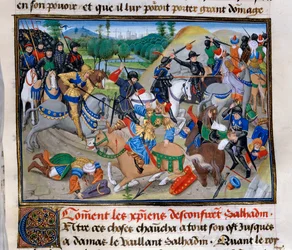 en son pouoir et que il lui pouoit porter grant domage
Coment les xpiens desconfirent Salhadin.
Entre ces choses chaucha a tout son ost jusques
a damas le vaillant Salhadin. Quant le roy